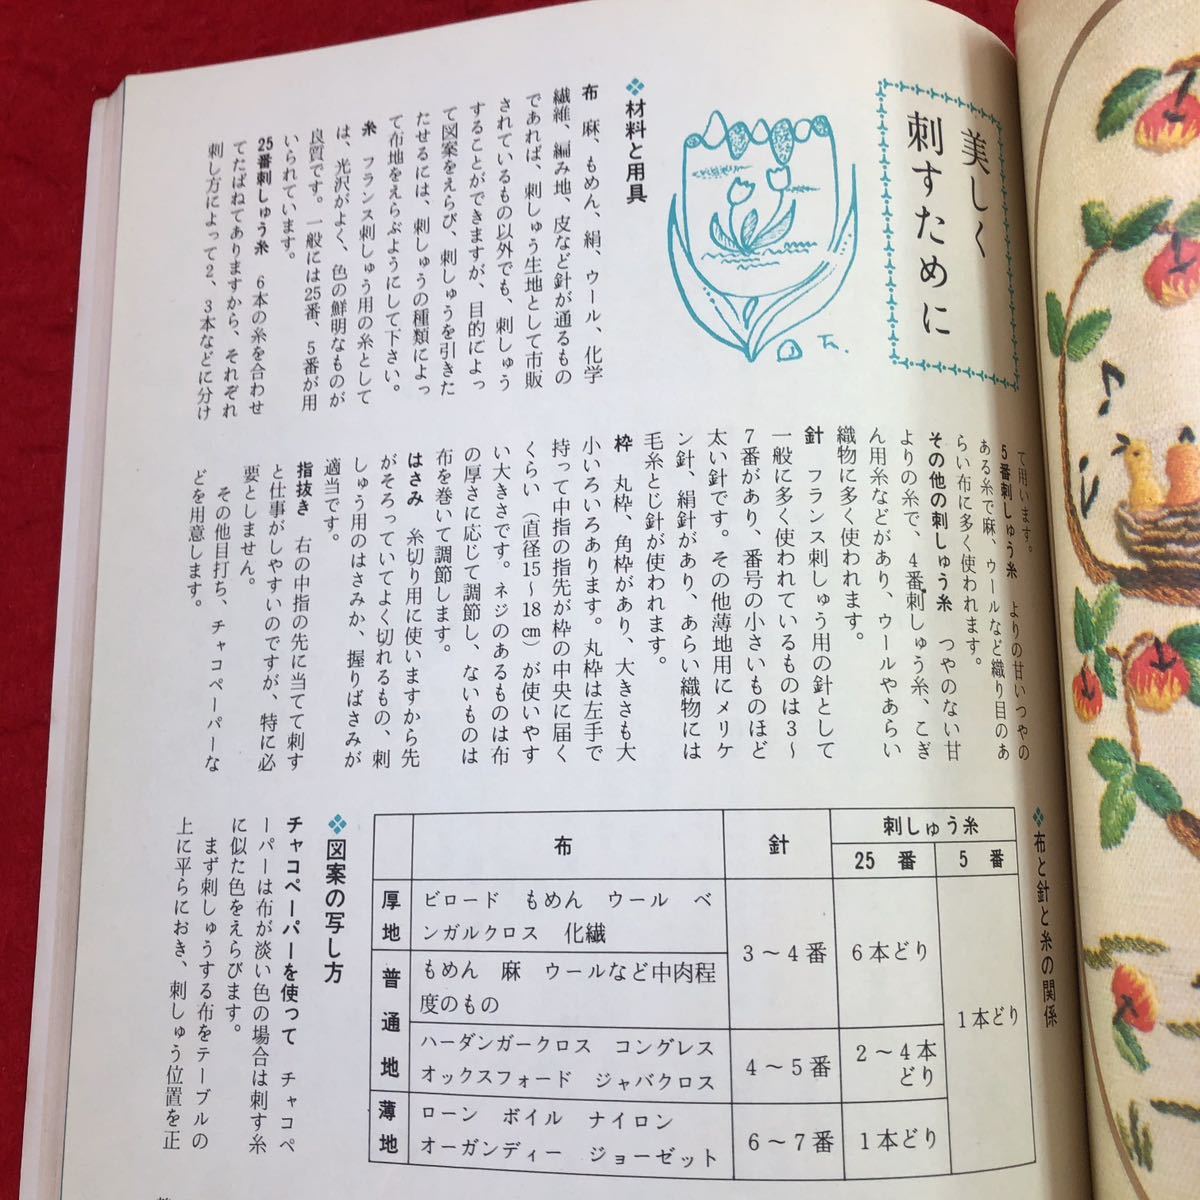 美しく
刺すために
Tn.
❖材料と用具
布　麻、もめん、絹、ウール、化学
繊維、編み地、皮など針が通るもの
であれば、刺しゅう生地として市販
されているもの以外でも、刺しゅう
することができますが、目的によっ
て図案をえらび、刺しゅうを引きた
たせるには、刺しゅうの種類によっ
て布地をえらぶようにして下さい。
糸　フランス刺しゅう用の糸として
は、光沢がよく、色の鮮明なものが
良質です。一般には25番、5番が用
いられています。
25番刺しゅう糸　6本の糸を合わせ
てたばねてありますから、それぞれ
刺し方によって2、3本などに分け
て用います。
5番刺しゅう糸　よりの甘いつやの
ある糸で麻、ウールなど織り目のあ
らい布に多く使われます。
その他の刺しゅう糸　つやのない甘
よりの糸で、4番刺しゅう糸、こぎ
ん用糸などがあり、ウールやあらい
織物に多く使われます。
針　フランス刺しゅう用の針として
一般に多く使われているものは3〜
7番があり、番号の小さいものほど
太い針です。その他薄地用にメリケ
ン針、絹針があり、あらい織物には
毛糸とじ針が使われます。
枠　丸枠、角枠があり、大きさも大
小いろいろあります。丸枠は左手で
持って中指の指先が枠の中央に届く
くらい（直径15〜18cm）が使いやす
い大きさです。ネジのあるものは布
の厚さに応じて調節し、ないものは
布を巻いて調節します。
はさみ　糸切り用に使いますから先
がそろっていてよく切れるもの、刺
しゅう用のはさみか、握りばさみが
適当です。
指抜き　右の中指の先に当てて刺す
と仕事がしやすいのですが、特に必
要としません。
その他目打ち、チャコペーパーな
どを用意します。
❖布と針と糸の関係
布　針　刺しゅう糸
25番　5番
厚地　ビロード　もめん　ウール　ベ
ンガルクロス　化繊　3〜4番　6本どり　1本どり
普通地　もめん　麻　ウールなど中肉程
度のもの
ハーダンガークロス　コングレス
オックスフォード　ジャバクロス　4〜5番　2〜4本
どり
薄地　ローン　ボイル　ナイロン
オーガンディー　ジョーゼット　6〜7番　1本どり
❖図案の写し方
チャコペーパーを使って　チャコペ
ーパーは布が淡い色の場合は刺す糸
に似た色をえらびます。
まず刺しゅうする布をテーブルの
上に平らにおき、刺しゅう位置を正